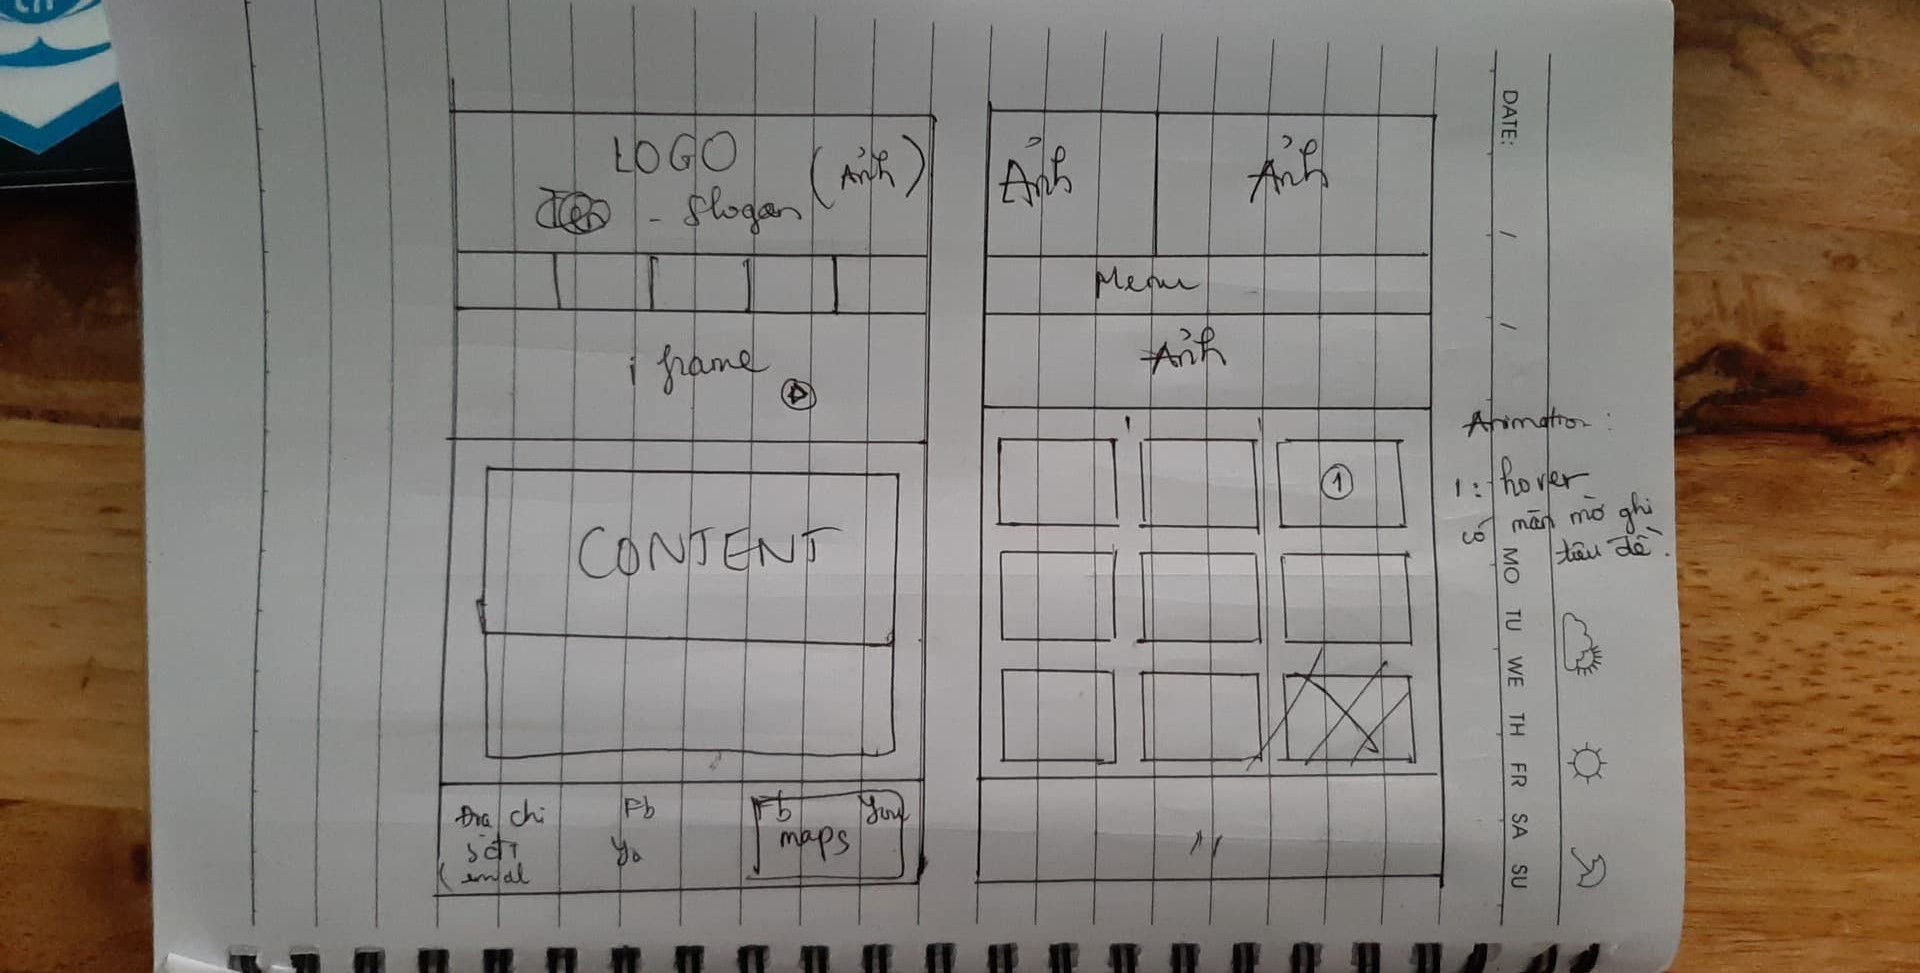 LOGO
- Slogan
(Ảnh)
i frame
CONTENT
Địa chỉ
SĐT
email
Fb
Yo
Fb You
maps
Ảnh
Ảnh
Menu
Ảnh
1
DATE: / /
Animation:
1: hover
có màn mờ ghi
tiêu đề.
MO TU WE TH FR SA SU